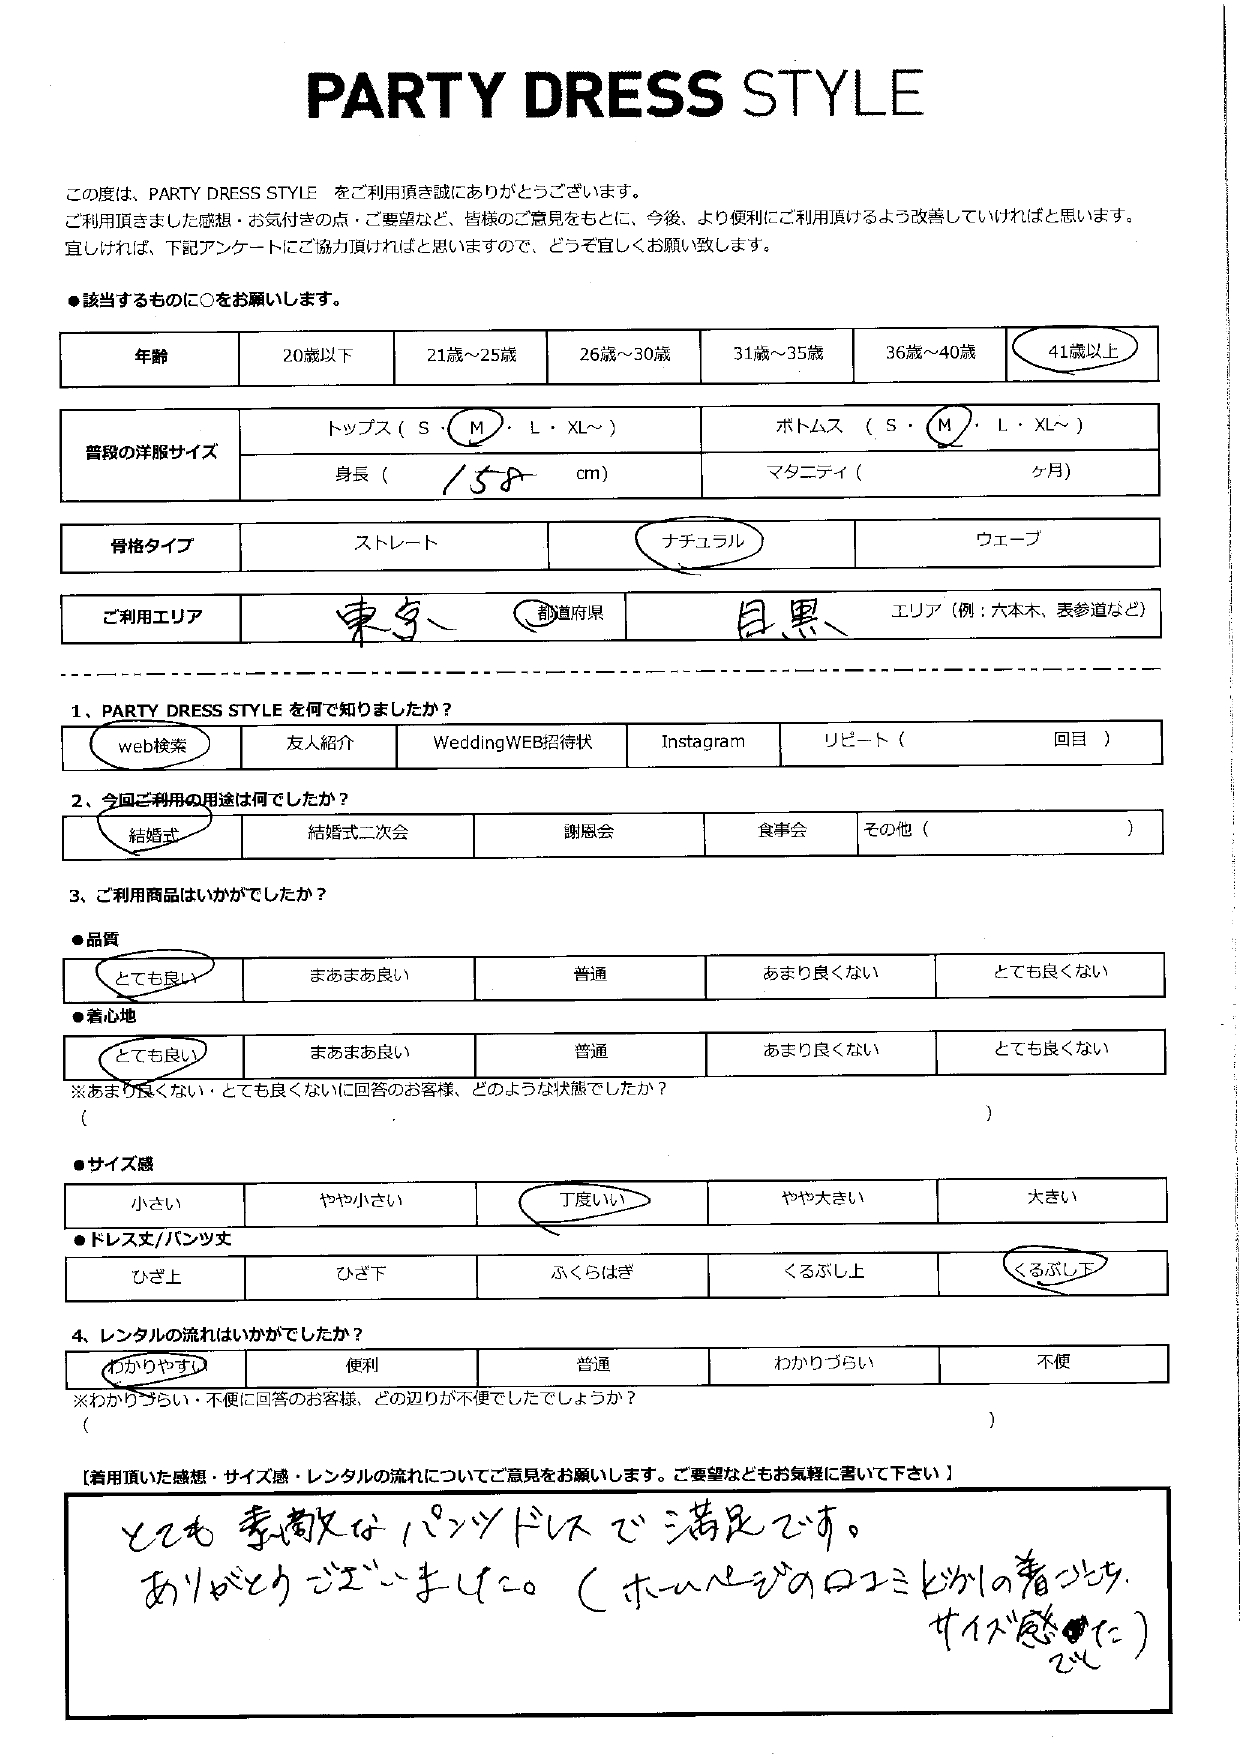 PARTY DRESS STYLE
この度は、PARTY DRESS STYLE をご利用頂き誠にありがとうございます。
ご利用頂きました感想・お気付きの点・ご要望など、皆様のご意見をもとに、今後、より便利にご利用頂けるよう改善していければと思います。
宜しければ、下記アンケートにご協力頂ければと思いますので、どうぞ宜しくお願い致します。
●該当するものに○をお願いします。
年齢 20歳以下 21歳～25歳 26歳～30歳 31歳～35歳 36歳～40歳 41歳以上
普段の洋服サイズ トップス（ S ・ M ・ L ・ XL～ ） ボトムス （ S ・ M ・ L ・ XL～ ）
身長（ 158 cm） マタニティ（ ヶ月）
骨格タイプ ストレート ナチュラル ウェーブ
ご利用エリア 東京 都道府県 目黒 エリア（例；六本木、表参道など）
1、PARTY DRESS STYLE を何で知りましたか？
web検索 友人紹介 WeddingWEB招待状 Instagram リピート（ 回目 ）
2、今回ご利用の用途は何でしたか？
結婚式 結婚式二次会 謝恩会 食事会 その他（ ）
3、ご利用商品はいかがでしたか？
●品質
とても良い まあまあ良い 普通 あまり良くない とても良くない
●着心地
とても良い まあまあ良い 普通 あまり良くない とても良くない
※あまり良くない・とても良くないに回答のお客様、どのような状態でしたか？
（ ）
●サイズ感
小さい やや小さい 丁度いい やや大きい 大きい
●ドレス丈/パンツ丈
ひざ上 ひざ下 ふくらはぎ くるぶし上 くるぶし下
4、レンタルの流れはいかがでしたか？
わかりやすい 便利 普通 わかりづらい 不便
※わかりづらい・不便に回答のお客様、どの辺りが不便でしたでしょうか？
（ ）
【着用頂いた感想・サイズ感・レンタルの流れについてご意見をお願いします。ご要望などもお気軽に書いて下さい 】
とても素敵なパンツドレスで満足です。
ありがとうございました。（ホームページの口コミどおりの着ごこち、
サイズ感でした）